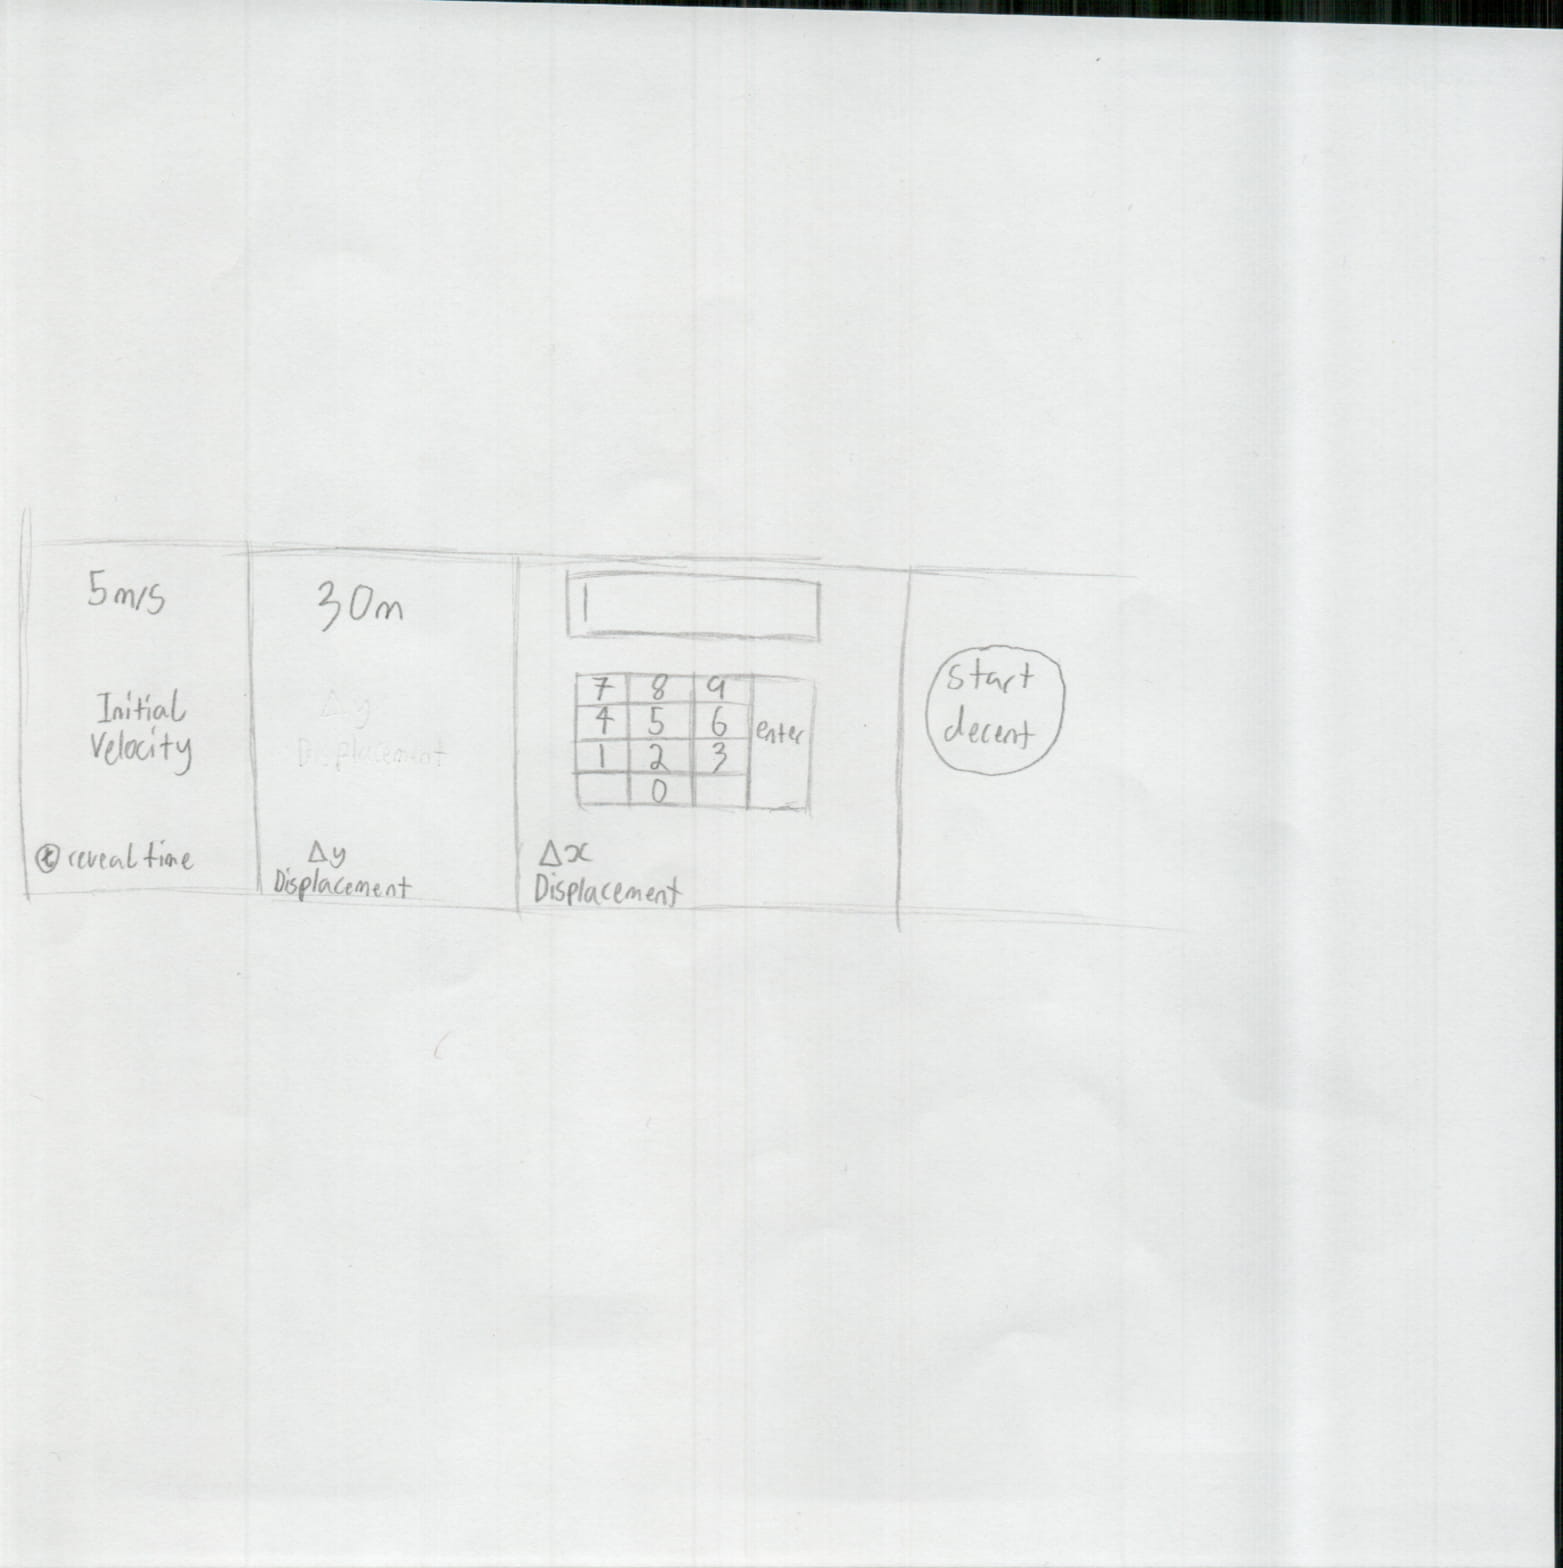 5m/s
Initial
Velocity
t reveal time
30m
Δy
Displacement
Δy
Displacement
7 8 9
4 5 6
1 2 3
0
enter
Δx
Displacement
start
decent